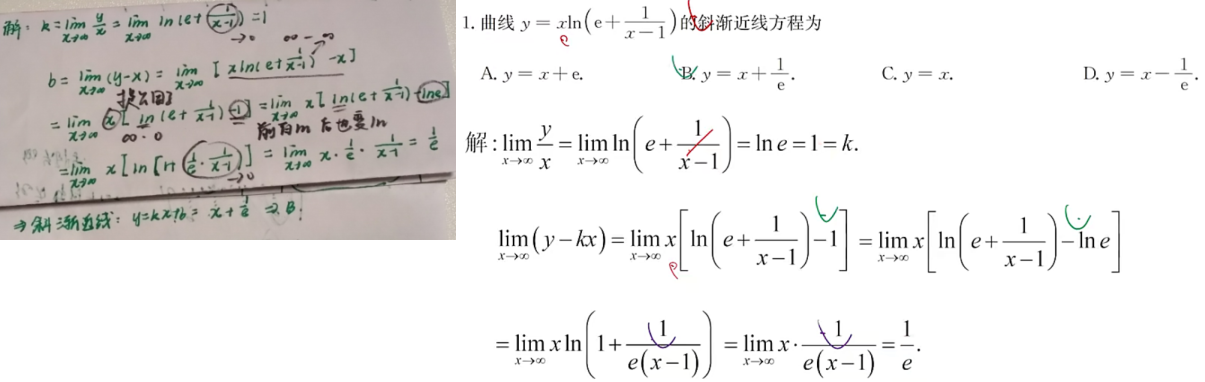 解: k = lim_{x→∞} y/x = lim_{x→∞} ln(e + 1/(x-1)) = 1
→0 ∞ - ∞
b = lim_{x→∞} (y-x) = lim_{x→∞} [x ln(e + 1/(x-1)) - x]
提公因子
= lim_{x→∞} x[ln(e + 1/(x-1)) - 1] = lim_{x→∞} x[ln(e + 1/(x-1)) - lne]
∞ · 0 前有ln 后也要ln
= lim_{x→∞} x[ln[1 + 1/e · 1/(x-1)]] = lim_{x→∞} x · 1/e · 1/(x-1) = 1/e
→0
⇒ 斜渐近线: y=kx+b = x + 1/e ⇒ B.
1. 曲线 y = xln(e + 1/(x-1)) 的斜渐近线方程为
A. y = x + e. B. y = x + 1/e. C. y = x. D. y = x - 1/e.
解: lim_{x→∞} y/x = lim_{x→∞} ln(e + 1/(x-1)) = ln e = 1 = k.
lim_{x→∞} (y - kx) = lim_{x→∞} x[ln(e + 1/(x-1)) - 1] = lim_{x→∞} x[ln(e + 1/(x-1)) - ln e]
= lim_{x→∞} x ln(1 + 1/(e(x-1))) = lim_{x→∞} x · 1/(e(x-1)) = 1/e.